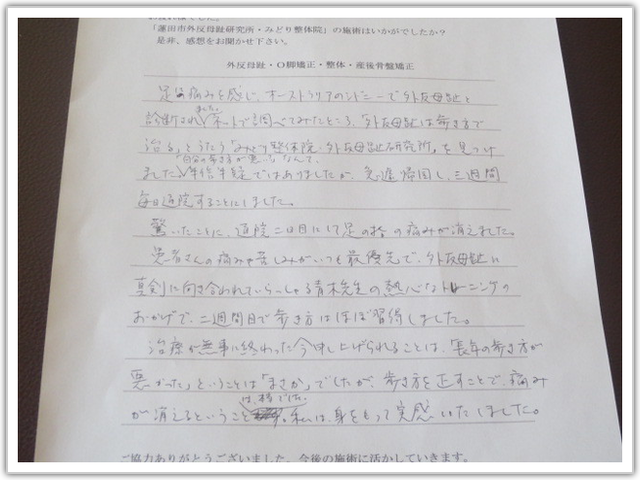 「蓮田市外反母趾研究所・みどり整体院」の施術はいかがでしたか?
是非、感想をお聞かせ下さい。
外反母趾・O脚矯正・整体・産後骨盤矯正
足に痛みを感じ、オーストラリアのシドニーで外反母趾と
診断されました。ネットで調べてみたところ、「外反母趾は歩き方で
治る」とうたう「みどり整体院・外反母趾研究所」を見つけ
ました。「自分の歩き方が悪い」なんて、半信半疑ではありましたが、急遽帰国し、三週間
毎日通院することにしました。
驚いたことに、通院二日目には足の指の痛みが消えました。
患者さんの痛みや苦しみがいつも最優先で、外反母趾に
真剣に向き合われていらっしゃる青木先生の熱心なトレーニングの
おかげで、二週間目で歩き方はほぼ習得しました。
治療が無事に終わった今申し上げられることは、「長年の歩き方が
悪かった」ということは「まさか」でしたが、歩き方を正すことで、痛み
が消えるということは、本当でした。私は、身をもって実感いたしました。
ご協力ありがとうございました。今後の施術に活かしていきます。